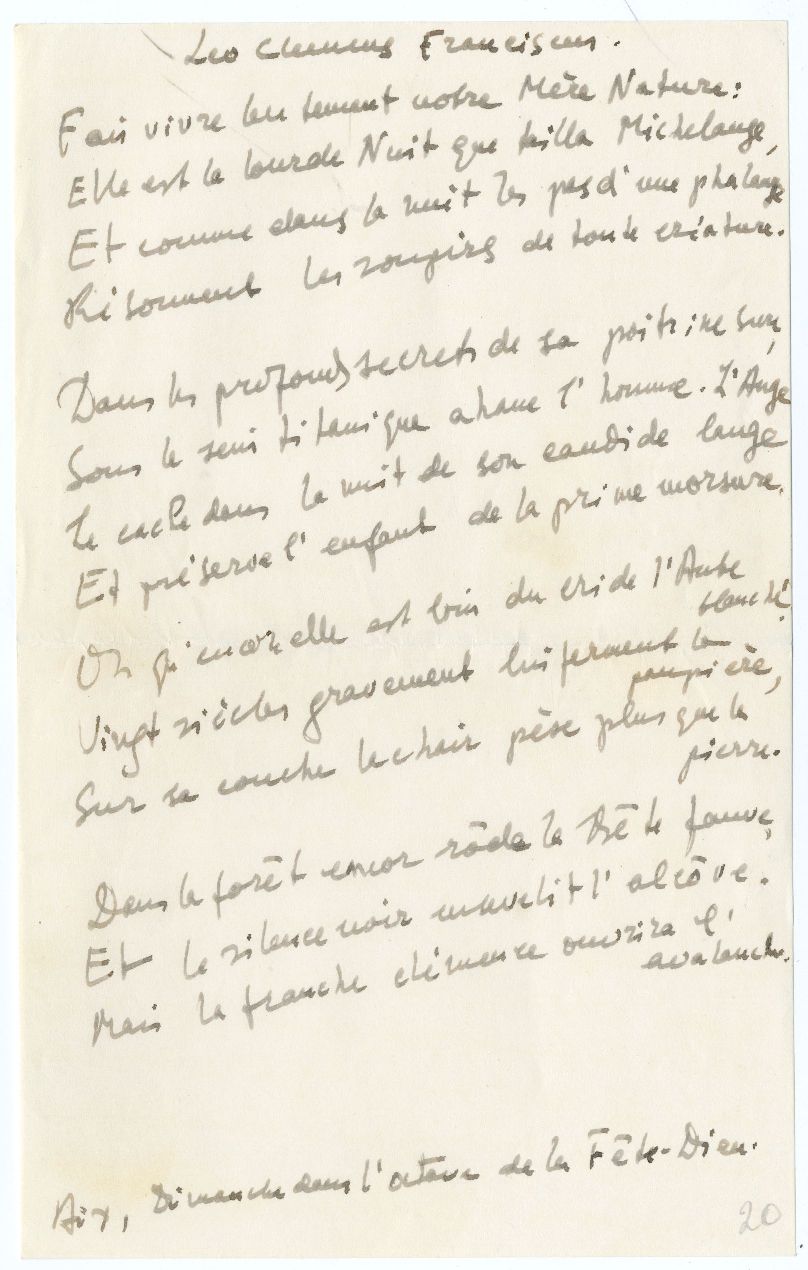 Leo Clemens Franciscus.
Fais vivre lentement notre Mère Nature:
Elle est la lourde Nuit que tailla Michelange,
Et comme dans la nuit les pas d'une phalange
Résonnent les soupirs de toute créature.
Dans les profonds secrets de sa poitrine sure,
Sous le sein titanique ahane l'homme. L'Ange
Le cache dans la nuit de son candide lange
Et préserve l'enfant de la prime morsure.
Oh qu'encor elle est loin du cri de l'Aube
blanche!
Vingt siècles gravement lui ferment la
paupière,
Sur sa couche la chair pèse plus que la
pierre.
Dans la forêt encor rôde la Bête fauve,
Et le silence noir ensevelit l'alcôve.
Mais la franche clémence ouvrira l'
avalanche.
Aix, Dimanche dans l'octave de la Fête-Dieu.
20